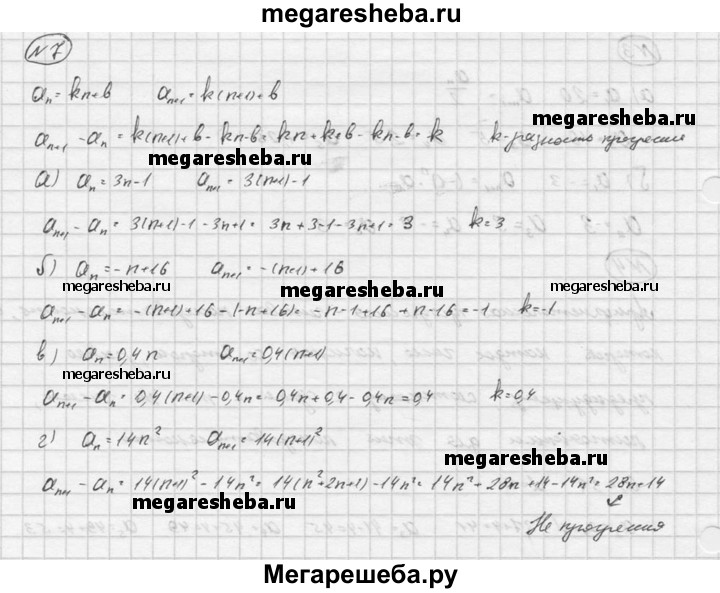 megaresheba.ru
N7
aₙ = kn+b   aₙ₊₁ = k(n+1)+b
megaresheba.ru
aₙ₊₁ - aₙ = k(n+1)+b - kn-b = kn+k+b - kn-b = k   k-разность прогрессии
megaresheba.ru
а) aₙ = 3n-1   aₙ₊₁ = 3(n+1)-1
aₙ₊₁ - aₙ = 3(n+1)-1-3n+1 = 3n+3-1-3n+1 = 3   k=3
megaresheba.ru
б) aₙ = -n+16   aₙ₊₁ = -(n+1)+16
megaresheba.ru megaresheba.ru
aₙ₊₁ - aₙ = -(n+1)+16-(-n+16) = -n-1+16+n-16 = -1   k=-1
в) aₙ = 0,4n   aₙ₊₁ = 0,4(n+1)
megaresheba.ru megaresheba.ru
aₙ₊₁ - aₙ = 0,4(n+1) - 0,4n = 0,4n+0,4-0,4n = 0,4   k=0,4
г) aₙ = 14n²   aₙ₊₁ = 14(n+1)²
megaresheba.ru
aₙ₊₁ - aₙ = 14(n+1)² - 14n² = 14(n²+2n+1)-14n² = 14n²+28n+14-14n² = 28n+14
megaresheba.ru
Не прогрессия
Мегарешеба.ру